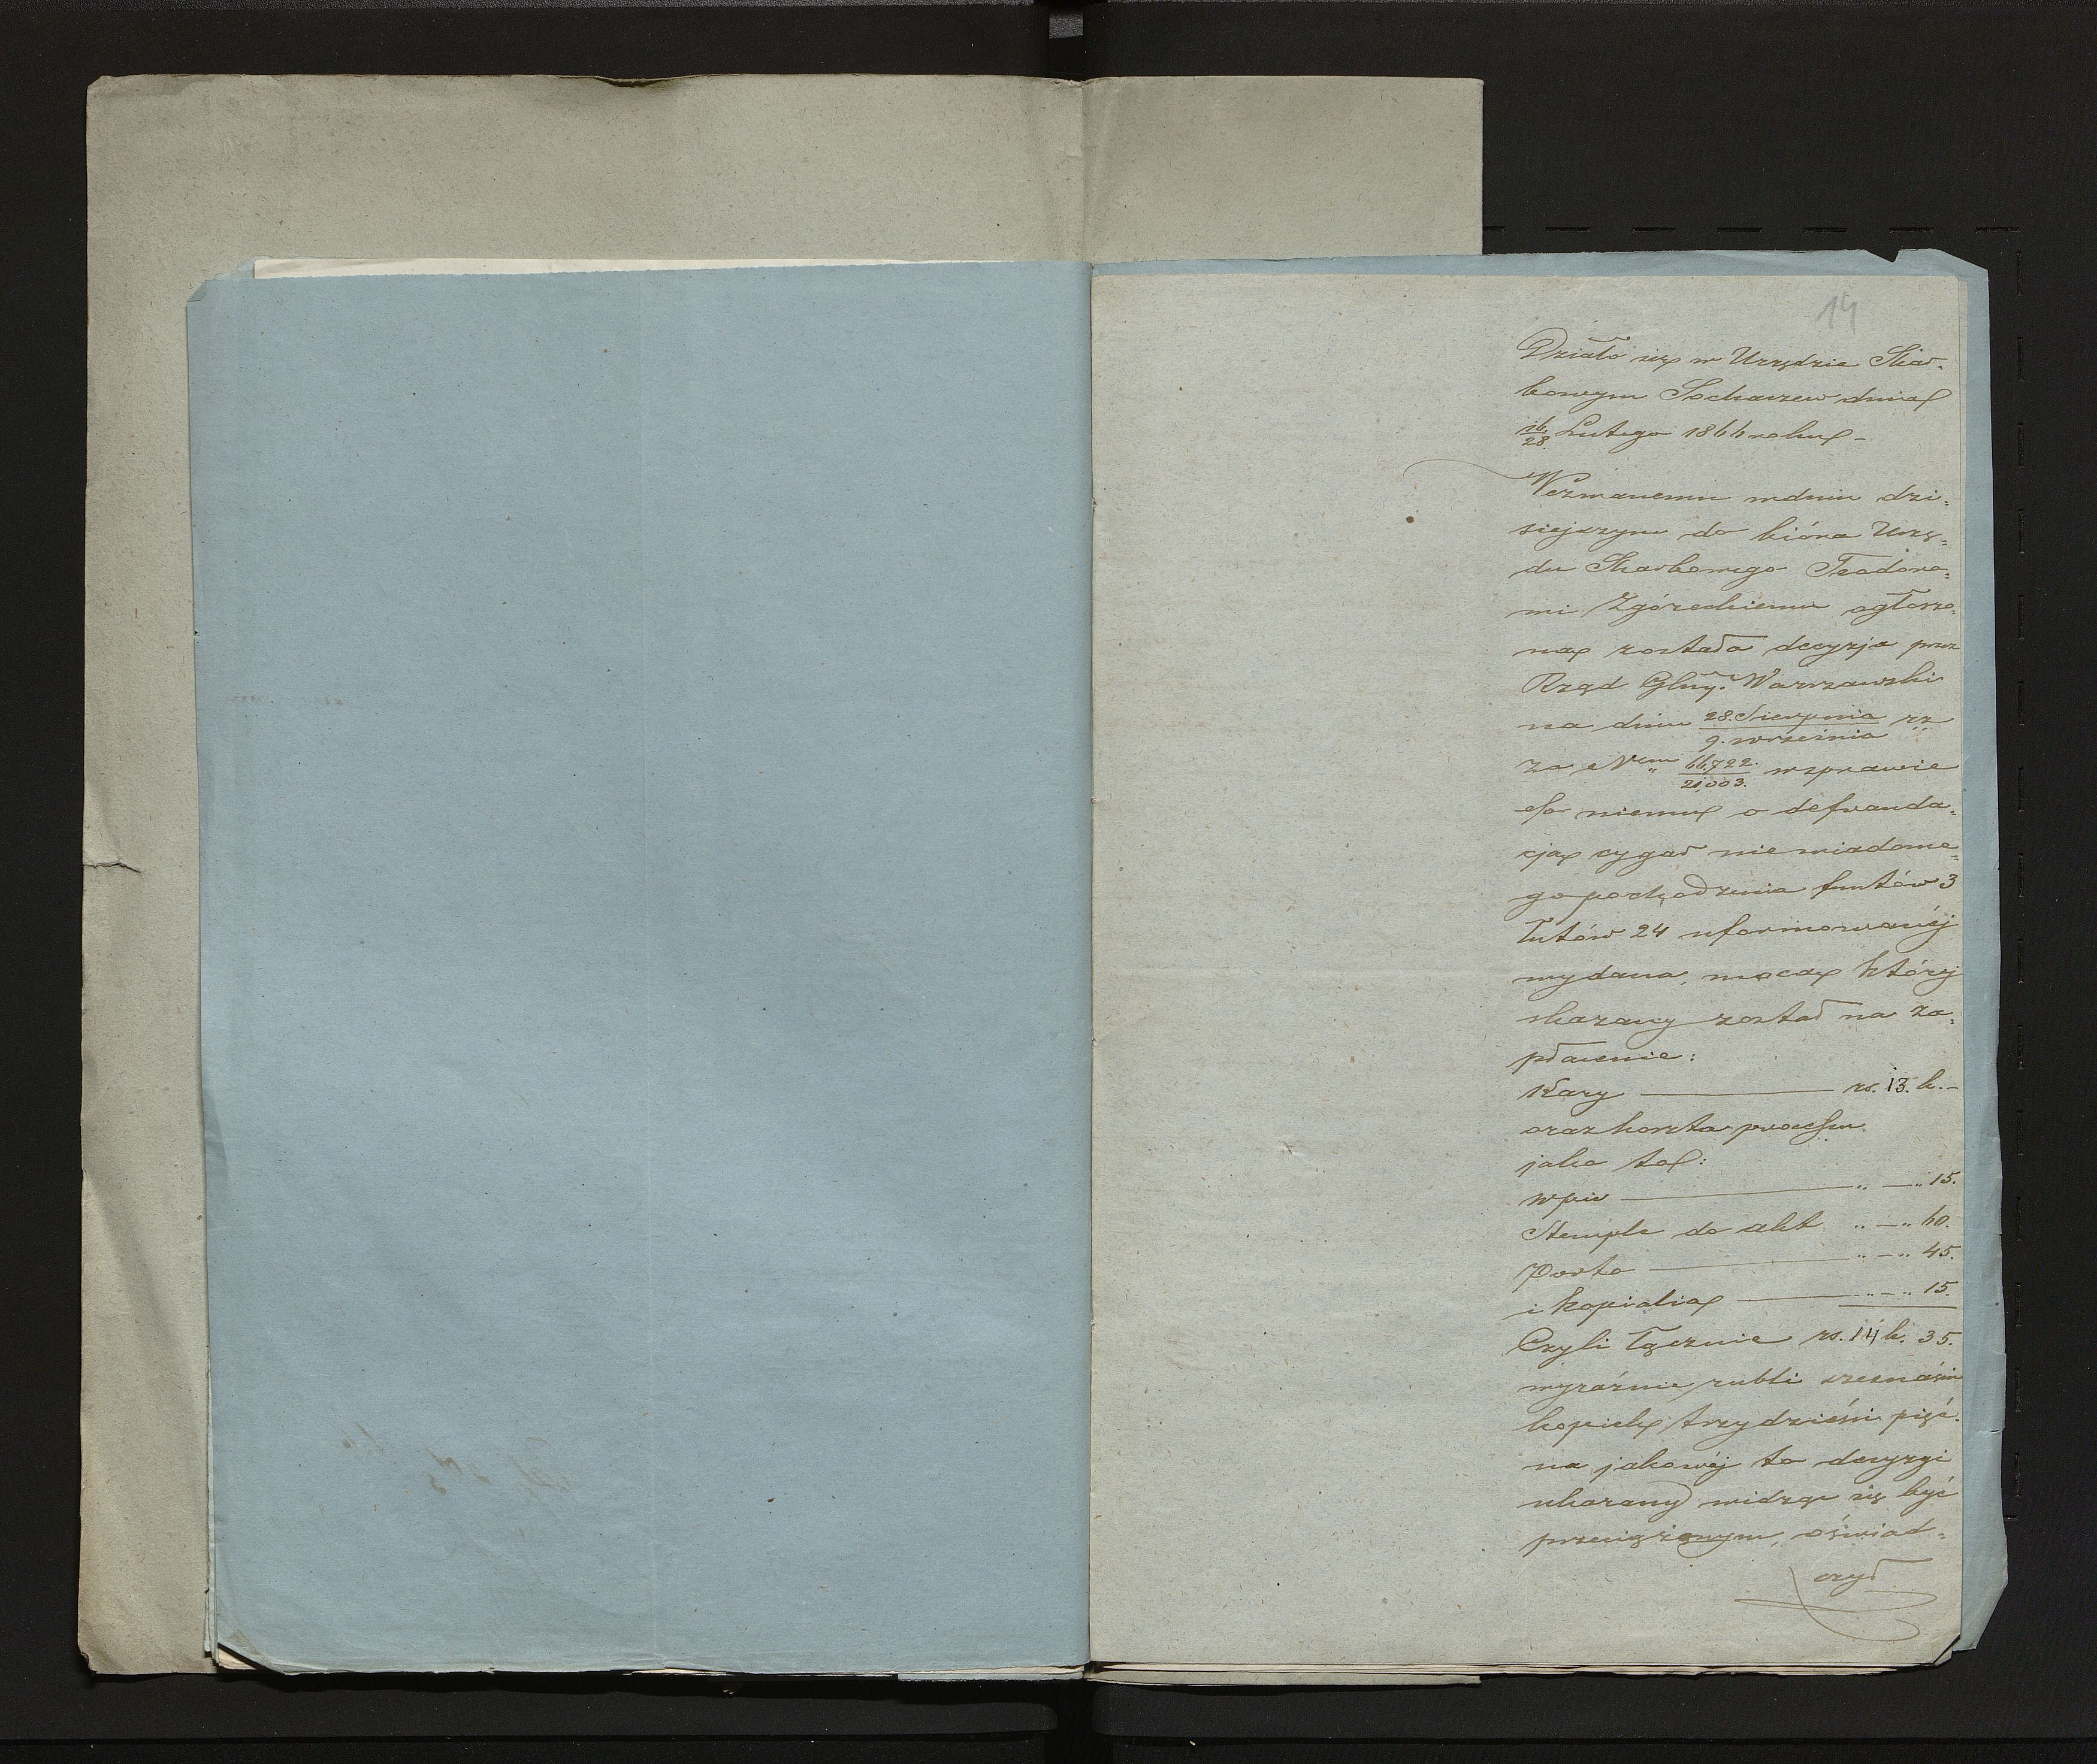 14
Działo się w Urzędzie Skar-
bowym Sochaczew dnia
16/28 Lutego 1866 roku -
Wezwanemu w dniu dzi-
siejszym do bióra Urzę-
du Skarbowego Teodoro-
wi Zgórzeckiemu ogłoszo-
na została decyzja przez
Rząd Gbny. Warszawski
na dniu 28. Sierpnia / 9. września rz
za Nrem 66,722. / 21,003. w sprawie
c/o niemu o defrauda-
cją cygar niewiadome-
go pochodzenia funtów 3
łutów 24 uformowanéj
wydana, mocą któréj
skazany został na za-
płacenie:
Kary — rs. 13. k. -
oraz koszta processu
jako to:
Wpis — " — " 15.
Stemple do akt " — " 60.
Porto — " — " 45.
i kopialia — " — " 15.
Czyli łącznie rs. 14 k. 35.
wyraźnie rubli
kopiek trzydzieści pięć.
na jakowéj to decyzyi
ukarany widząc się być
przeciążonym, oświad-
czył